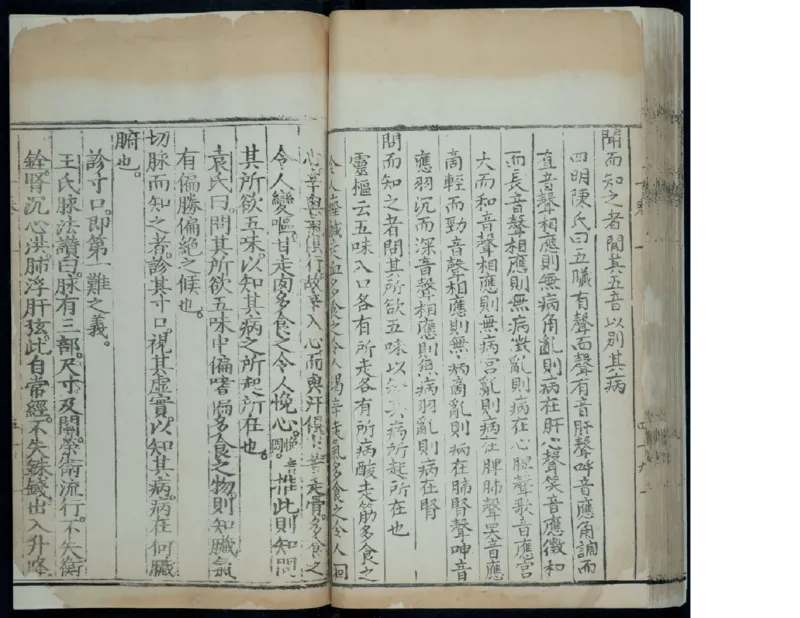 聞而知之者聞其五音以別其病
四明陳氏曰五臟有聲而聲有音肝聲呼音應角調而
直音聲相應則無病角亂則病在肝心聲笑音應徵和
而長音聲相應則無病徵亂則病在心脾聲歌音應宮
大而和音聲相應則無病宮亂則病在脾肺聲哭音應
商輕而勁音聲相應則無病商亂則病在肺腎聲呻音
應羽沉而深音聲相應則無病羽亂則病在腎
問而知之者問其所欲五味以知其病所起所在也
靈樞云五味入口各有所走各有所病酸走筋多食之
令人癃鹹走血多食之令人渴辛走氣多食之令人洞
心辛與氣俱行故辛入心而與汗俱出苦走骨多食之
令人變嘔甘走肉多食之令人悗心。悗音悶。推此則知問
其所欲五味。以知其病之所起所在也。
袁氏曰。問其所欲五味中偏嗜偏多食之物。則知臟氣
有偏勝偏絕之候也。
切脉而知之者。診其寸口。視其虛實。以知其病。病在何臟
腑也。
診寸口。卽第一難之義。
王氏脉法讚曰。脉有三部。尺寸及關。榮衛流行。不失衡
銓。腎沉心洪。肺浮肝弦。此自常經。不失銖錢。出入升降